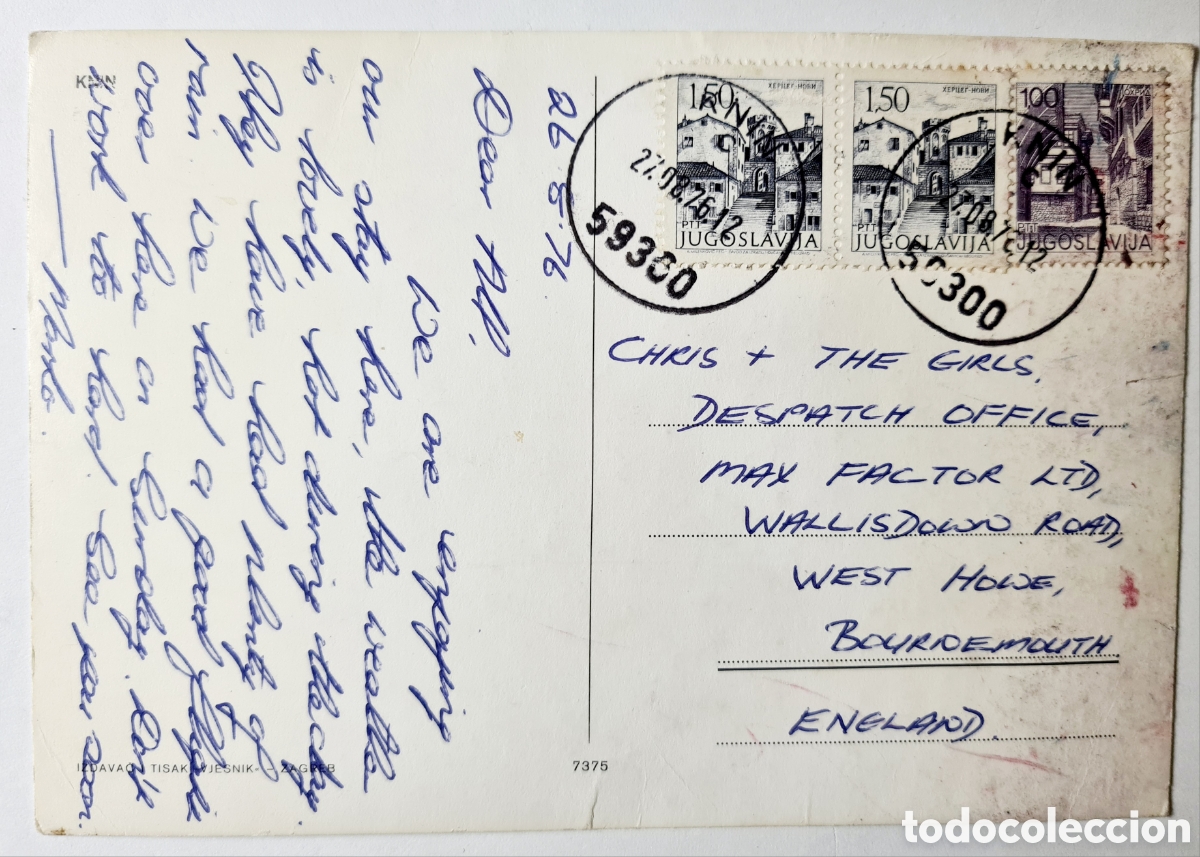 KNIN
26-8-76
Dear All,
We are enjoying
our stay here, the weather
is lovely, hot during the day.
They have had plenty of
rain. We had a good flight
over here on Sunday. Don't
work to hard. See you soon.
IZDAVAČ I TISAK »VJESNIK« - ZAGREB
7375
1,50
ХЕРЦЕГ-НОВИ
PTT
JUGOSLAVIJA
1,50
ХЕРЦЕГ-НОВИ
PTT
JUGOSLAVIJA
100
PTT
JUGOSLAVIJA
KNIN
27.08.76.12
59300
KNIN
27.08.76.12
59300
CHRIS + THE GIRLS.
DESPATCH OFFICE,
MAX FACTOR LTD,
WALLISDOWN ROAD,
WEST HOWE,
BOURNEMOUTH
ENGLAND.
todocoleccion